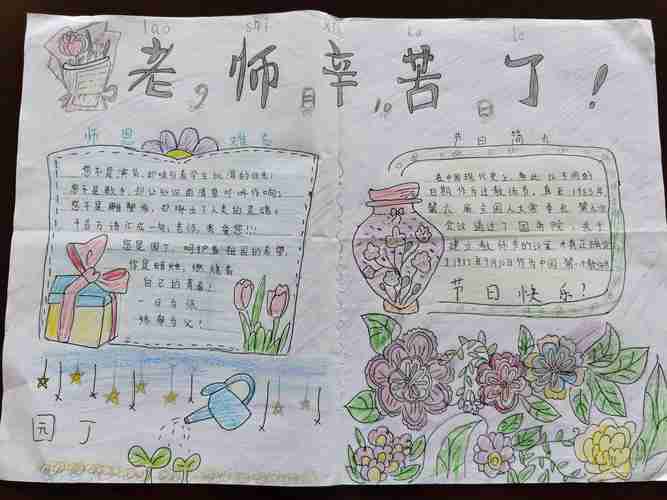 lao shi xin ku le
老师辛苦了!
9月10日
师恩难忘
您不是演员,却吸引着学生饥渴的目光;
您不是歌手,却让知识的清泉叮咚作响,
您不是雕塑家,却
千言万语汇成一句:老师,
您是园丁,呵护着祖国的希望,
你是蜡烛,燃烧着
自己的青春!
一日为师
终身为父!
园丁
节日简介
在中国现代史上,
日期作为过教师节,直至1985年
第六届全国人大常委会第九次
会议通过了国务院,关于
建立教师节的议案,才真正确定
了1985年9月10日作为中国第一个教师节
节日快乐!